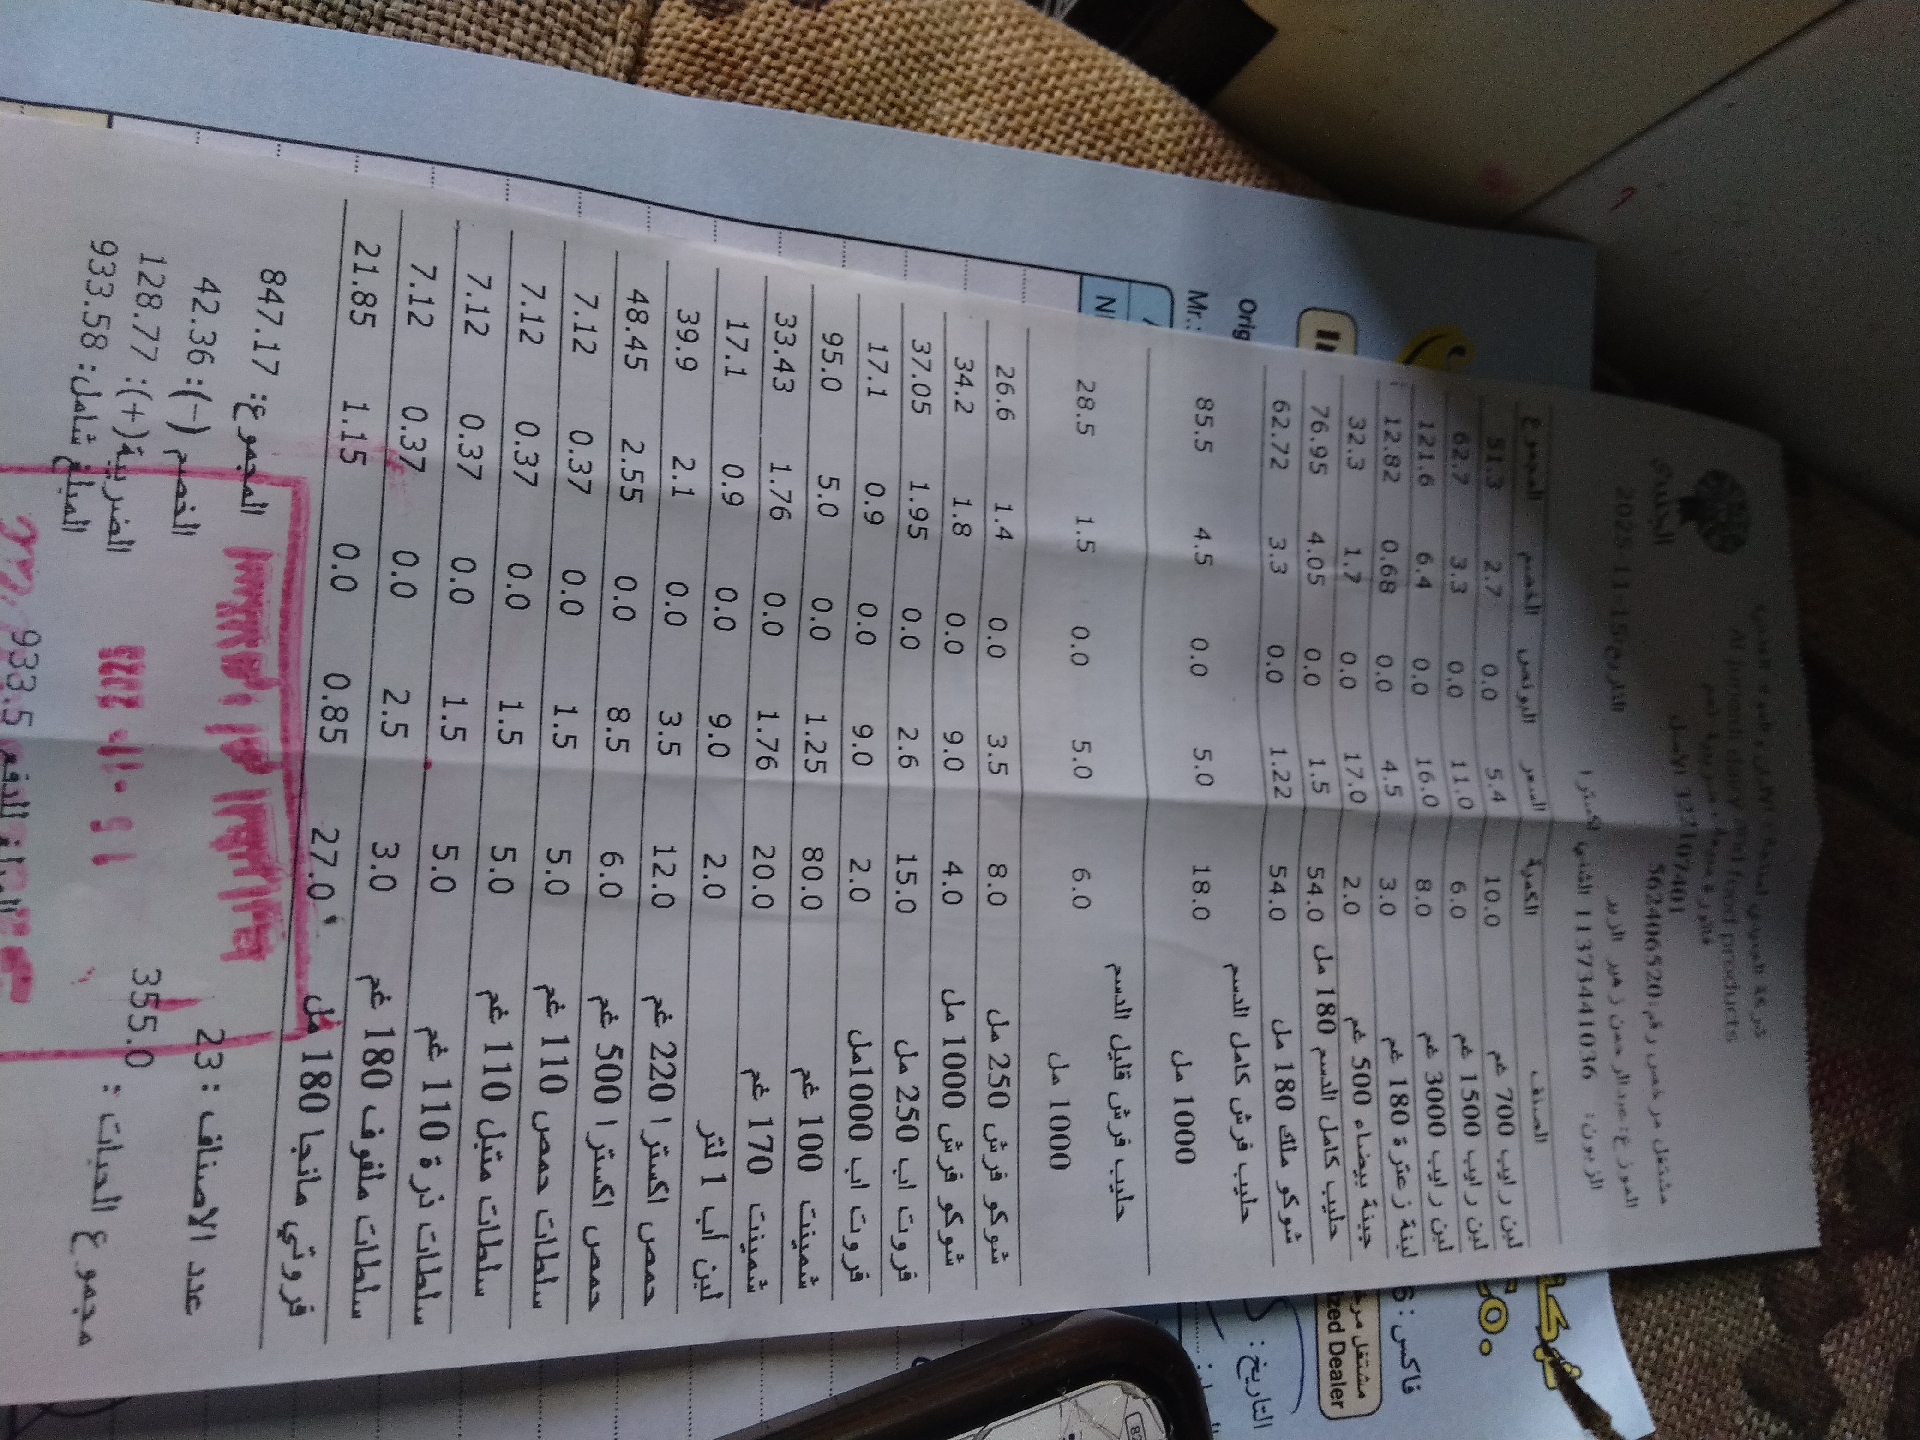 الجنيدي
Al juneidi dairy and food products
مشتغل مرخص رقم: 562406520
التاريخ: 15-11-2025
الزبون: 11373441036
الصنف الكمية السعر البونص الخصم المجموع
لبن رايب 700 غم 10.0 5.4 0.0 2.7 51.3
لبن رايب 1500 غم 6.0 11.0 0.0 3.3 62.7
لبن رايب 3000 غم 8.0 16.0 0.0 6.4 121.6
لبنة زعترة 180 غم 3.0 4.5 0.0 0.68 12.82
جبنة بيضاء 500 غم 2.0 17.0 0.0 1.7 32.3
حليب كامل الدسم 180 مل 54.0 1.5 0.0 4.05 76.95
شوكو ملك 180 مل 54.0 1.22 0.0 3.3 62.72
حليب فرش كامل الدسم
1000 مل 18.0 5.0 0.0 4.5 85.5
حليب فرش قليل الدسم
1000 مل 6.0 5.0 0.0 1.5 28.5
شوكو فرش 250 مل 8.0 3.5 0.0 1.4 26.6
شوكو فرش 1000 مل 4.0 9.0 0.0 1.8 34.2
فروت اب 250 مل 15.0 2.6 0.0 1.95 37.05
فروت اب 1000مل 2.0 9.0 0.0 0.9 17.1
شمينت 100 غم 80.0 1.25 0.0 5.0 95.0
شمينت 170 غم 20.0 1.76 0.0 1.76 33.43
لبن أب 1 لتر 2.0 9.0 0.0 0.9 17.1
حمص اكسترا 220 غم 12.0 3.5 0.0 2.1 39.9
حمص اكسترا 500 غم 6.0 8.5 0.0 2.55 48.45
سلطات حمص 110 غم 5.0 1.5 0.0 0.37 7.12
سلطات متبل 110 غم 5.0 1.5 0.0 0.37 7.12
سلطات ذرة 110 غم 5.0 1.5 0.0 0.37 7.12
سلطات ملفوف 180 غم 3.0 2.5 0.0 0.37 7.12
فروتي مانجا 180 مل 27.0 0.85 0.0 1.15 21.85
عدد الاصناف : 23 المجموع: 847.17
مجموع الحبات : 355.0 الخصم (-): 42.36
الضريبة(+): 128.77
المبلغ شامل: 933.58
933.5
Orig
Mr.:
فاكس :
مشتغل مرخ
zed Dealer
التاريخ :